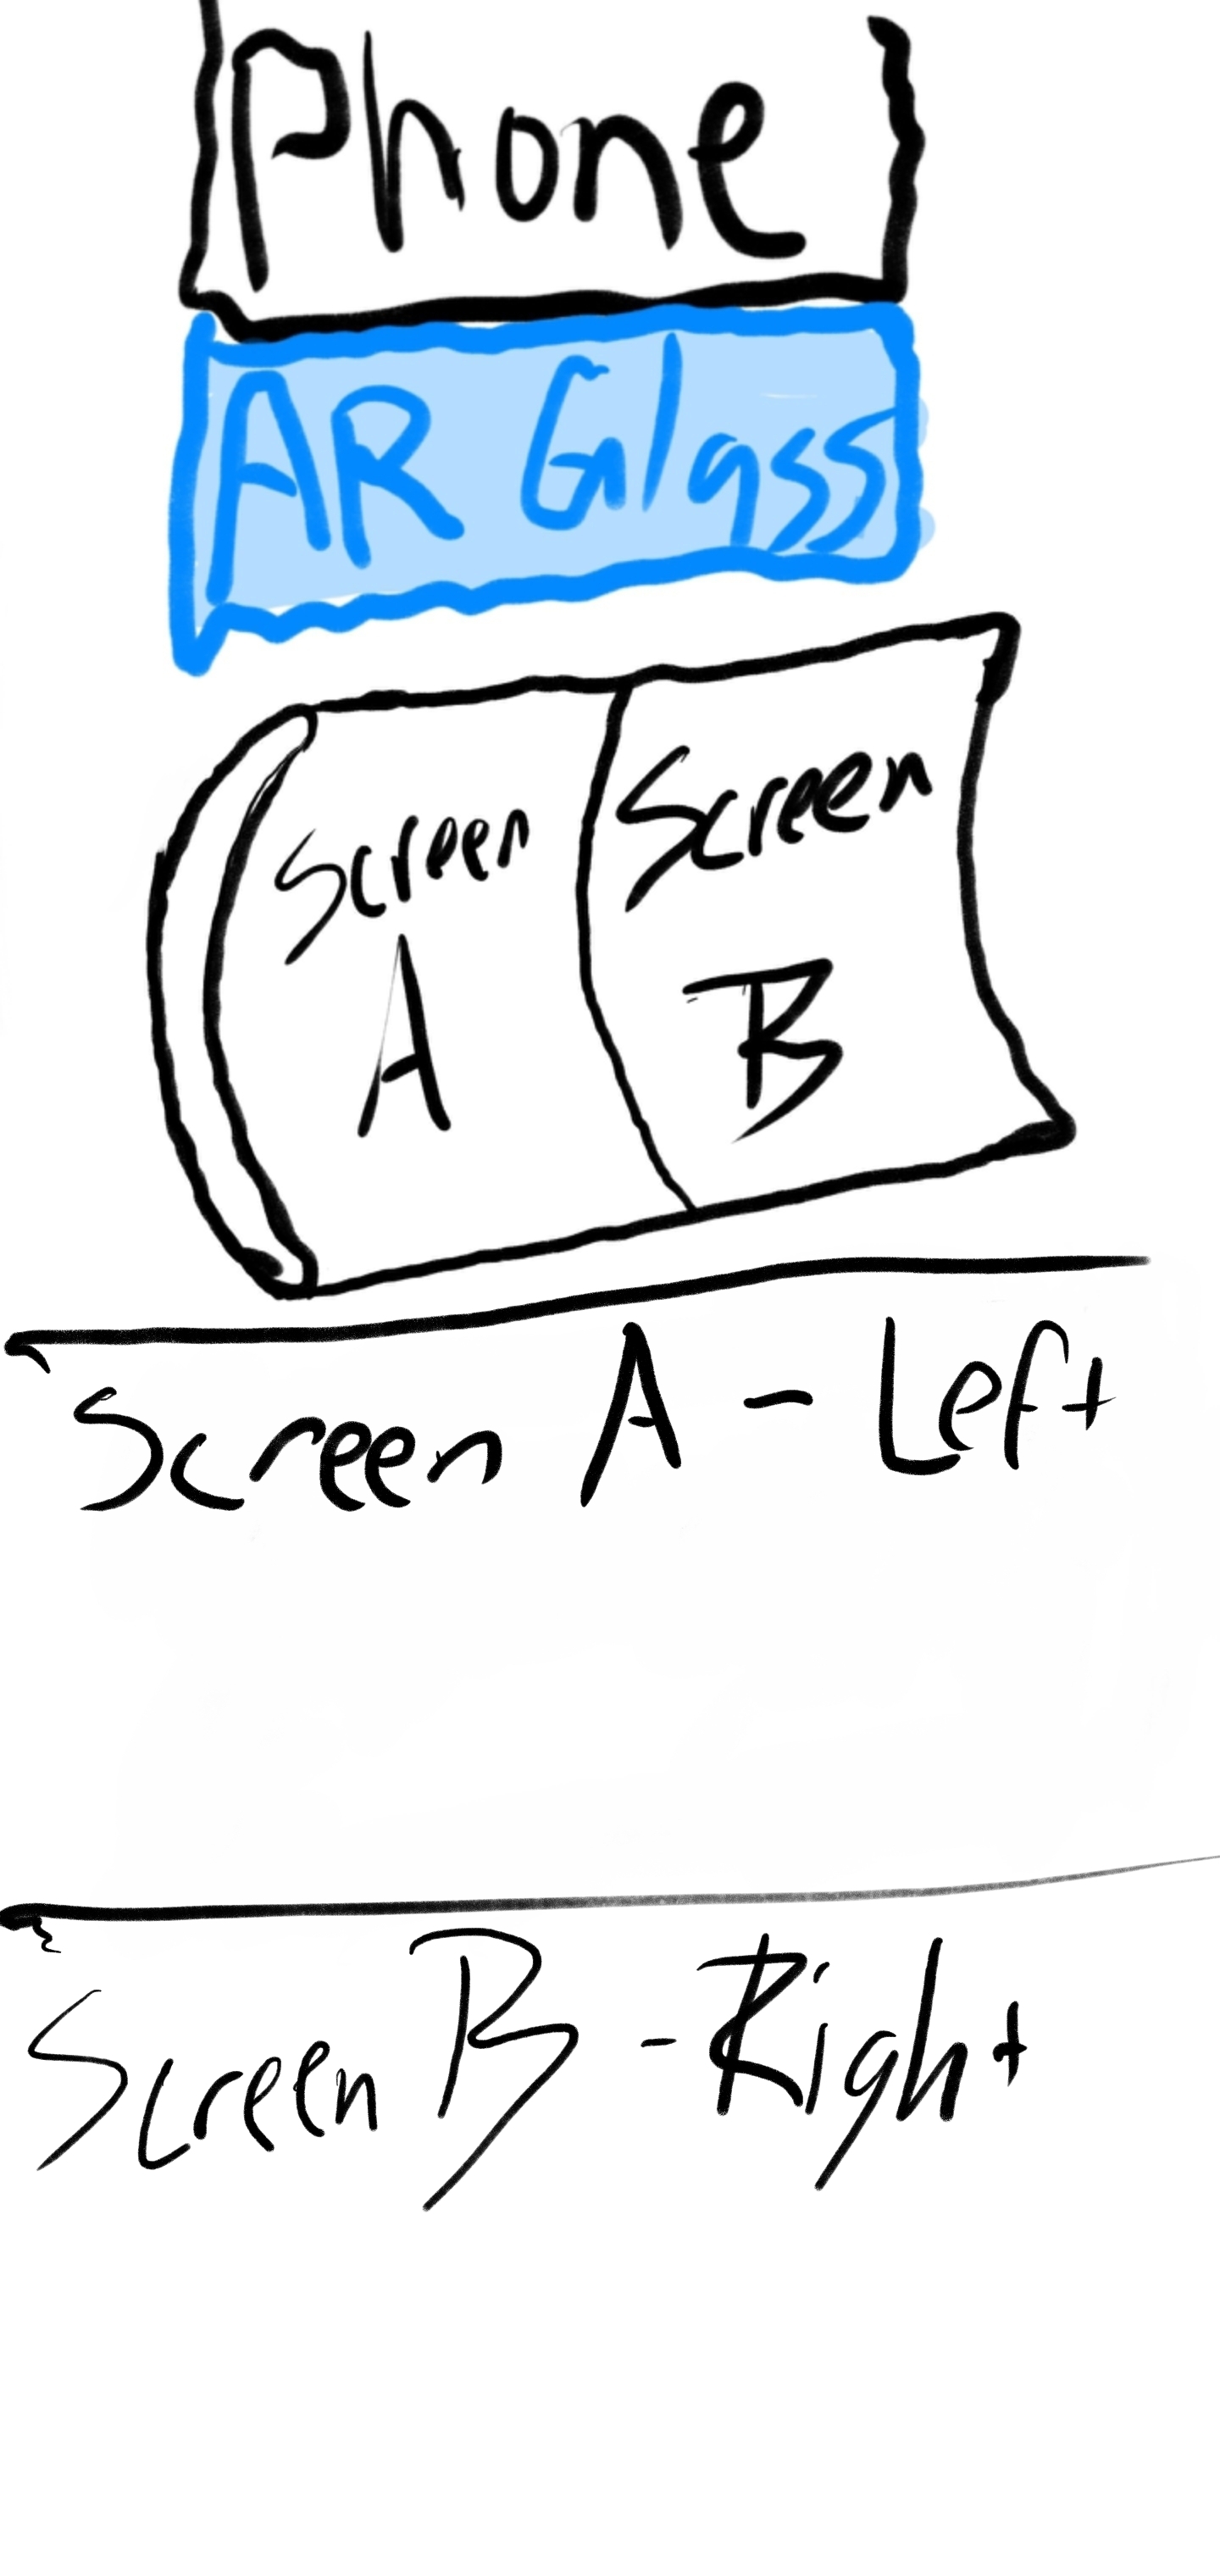 Phone
AR Glass
Screen
A
Screen
B
Screen A - Left
Screen B - Right